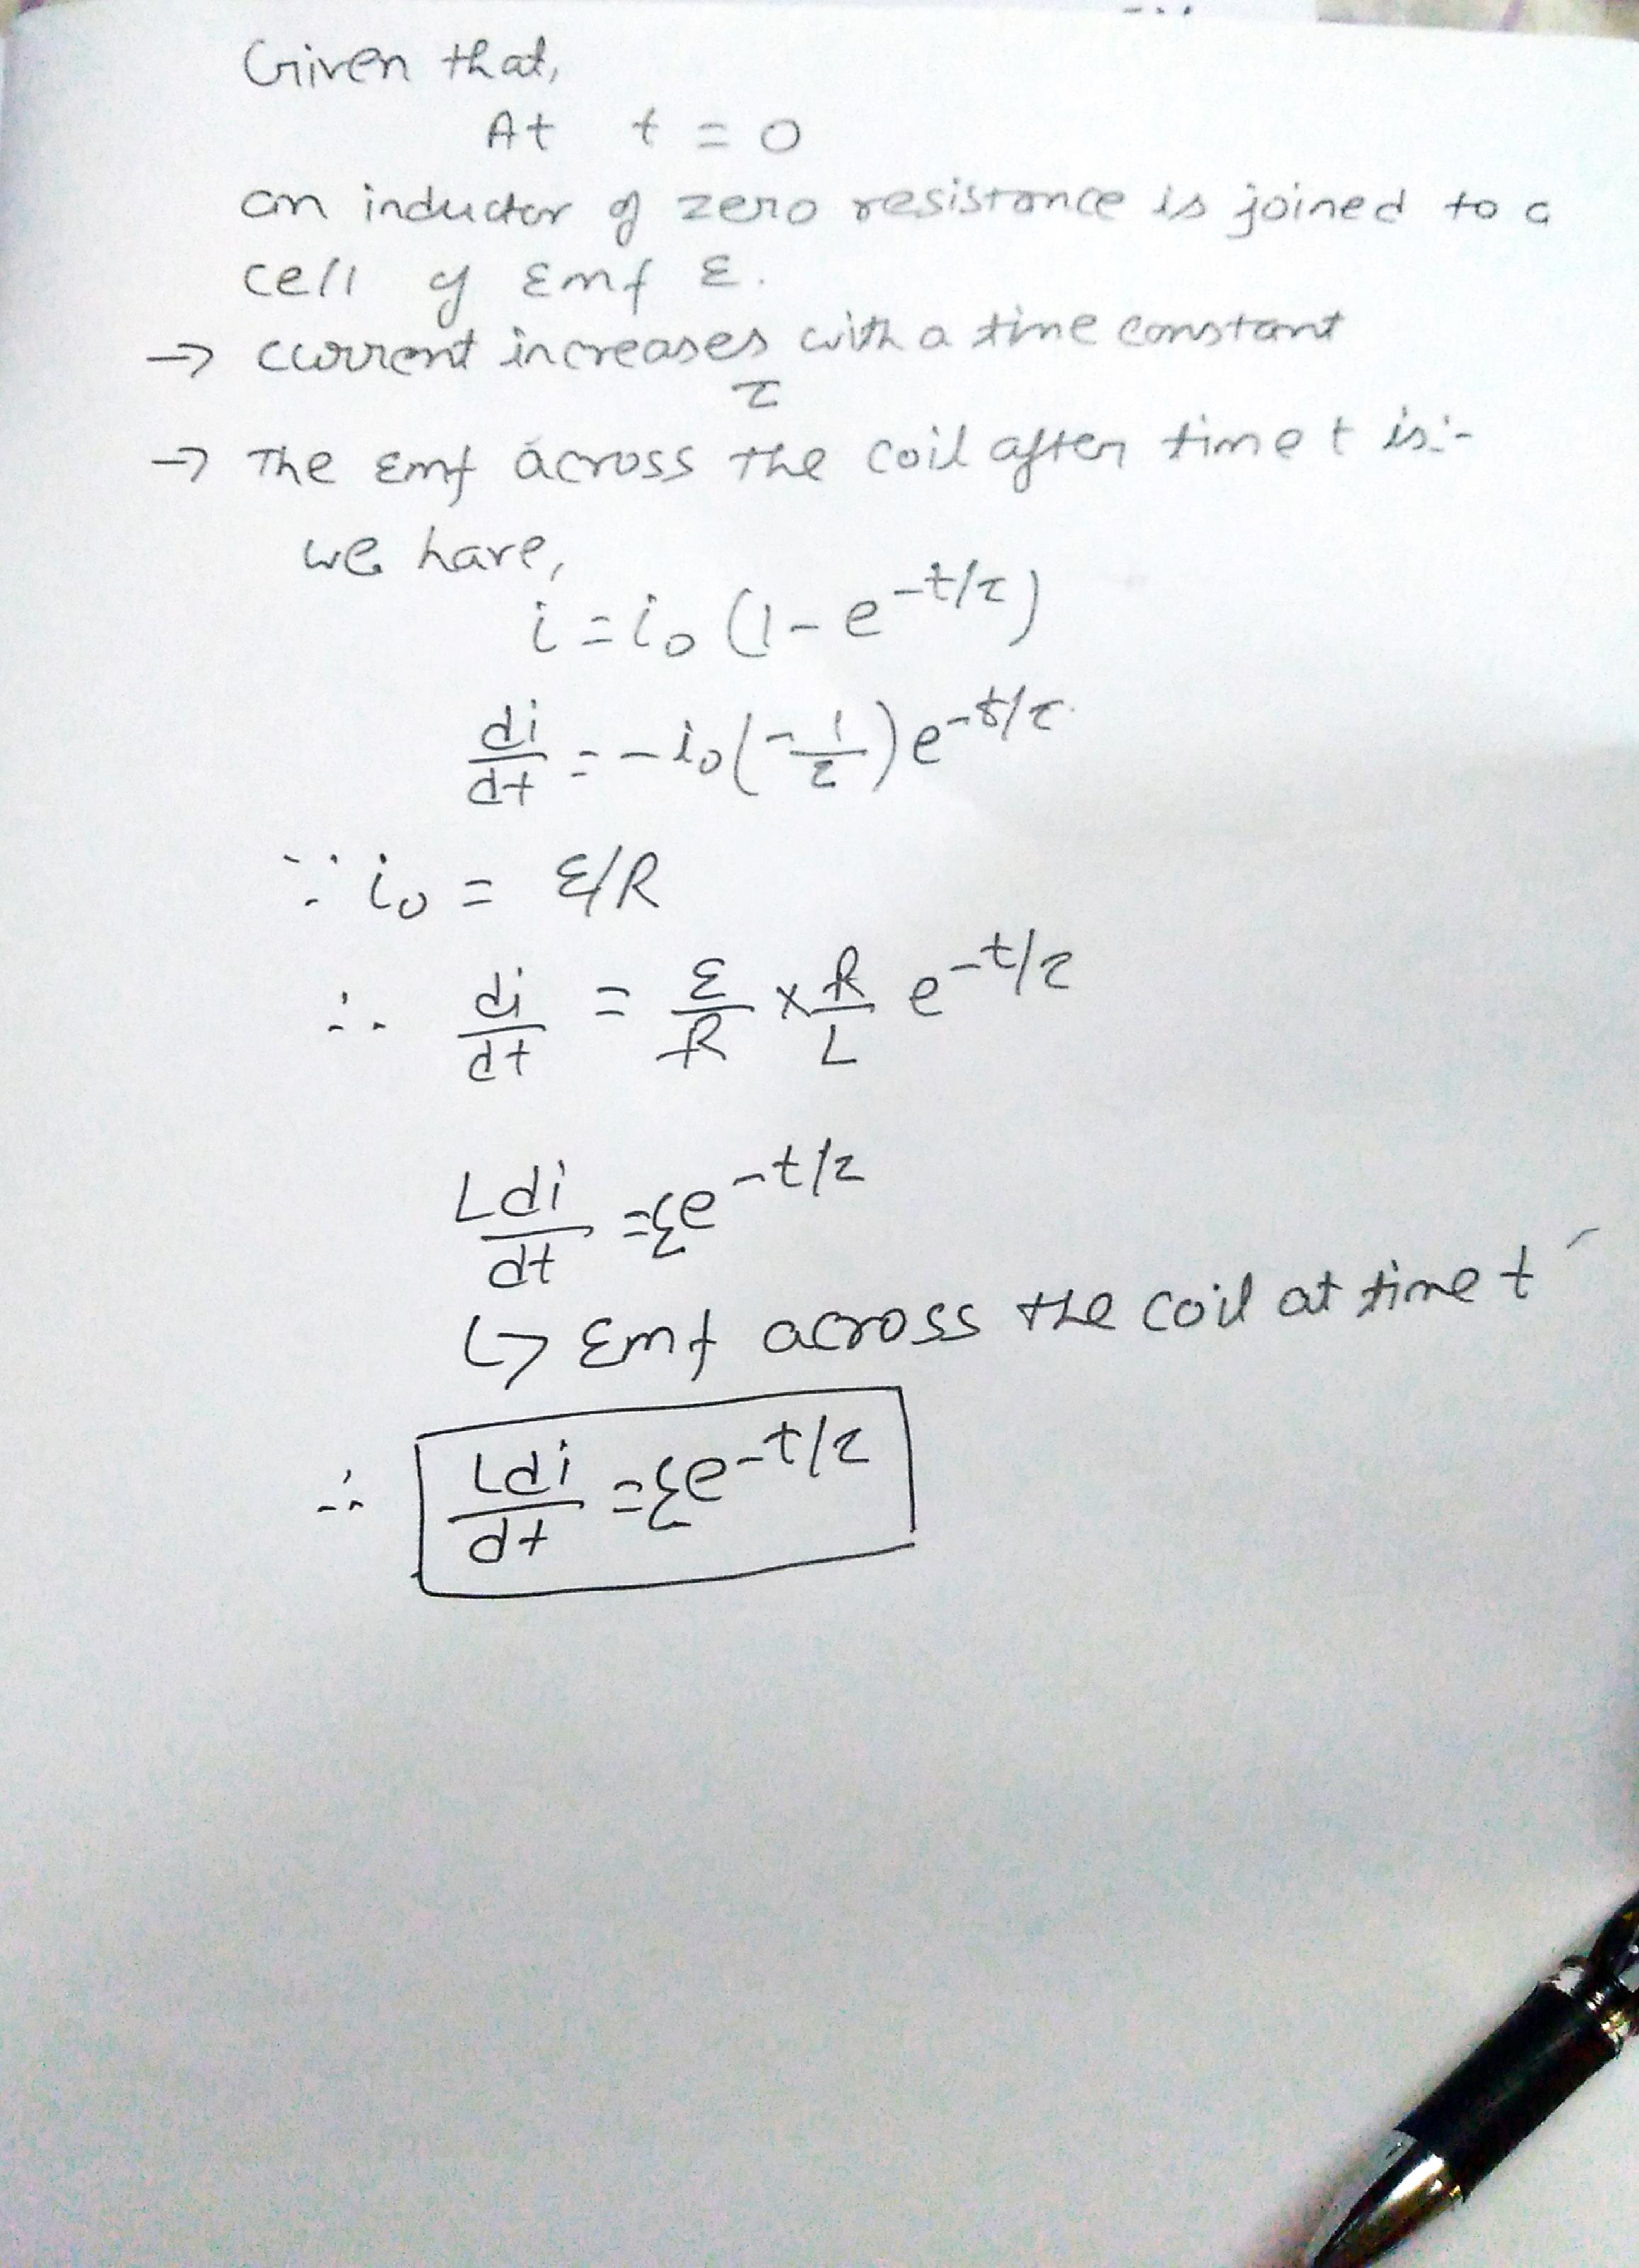 Given that,
At t = 0
an inductor of zero resistance is joined to a
cell of Emf ε.
→ current increases with a time constant
τ
→ The Emf across the coil after time t is:-
we have,
i = i₀ (1 - e^-t/τ)
di/dt = -i₀(-1/τ) e^-t/τ
∵ i₀ = ε/R
∴ di/dt = ε/R × R/L e^-t/τ
Ldi/dt = εe^-t/τ
↳ Emf across the coil at time t
∴ Ldi/dt = εe^-t/τ